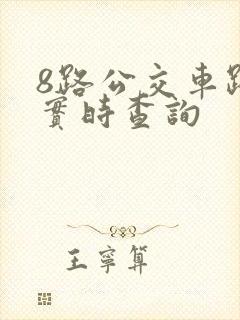 8路公交車路
實時查詢
王寧算